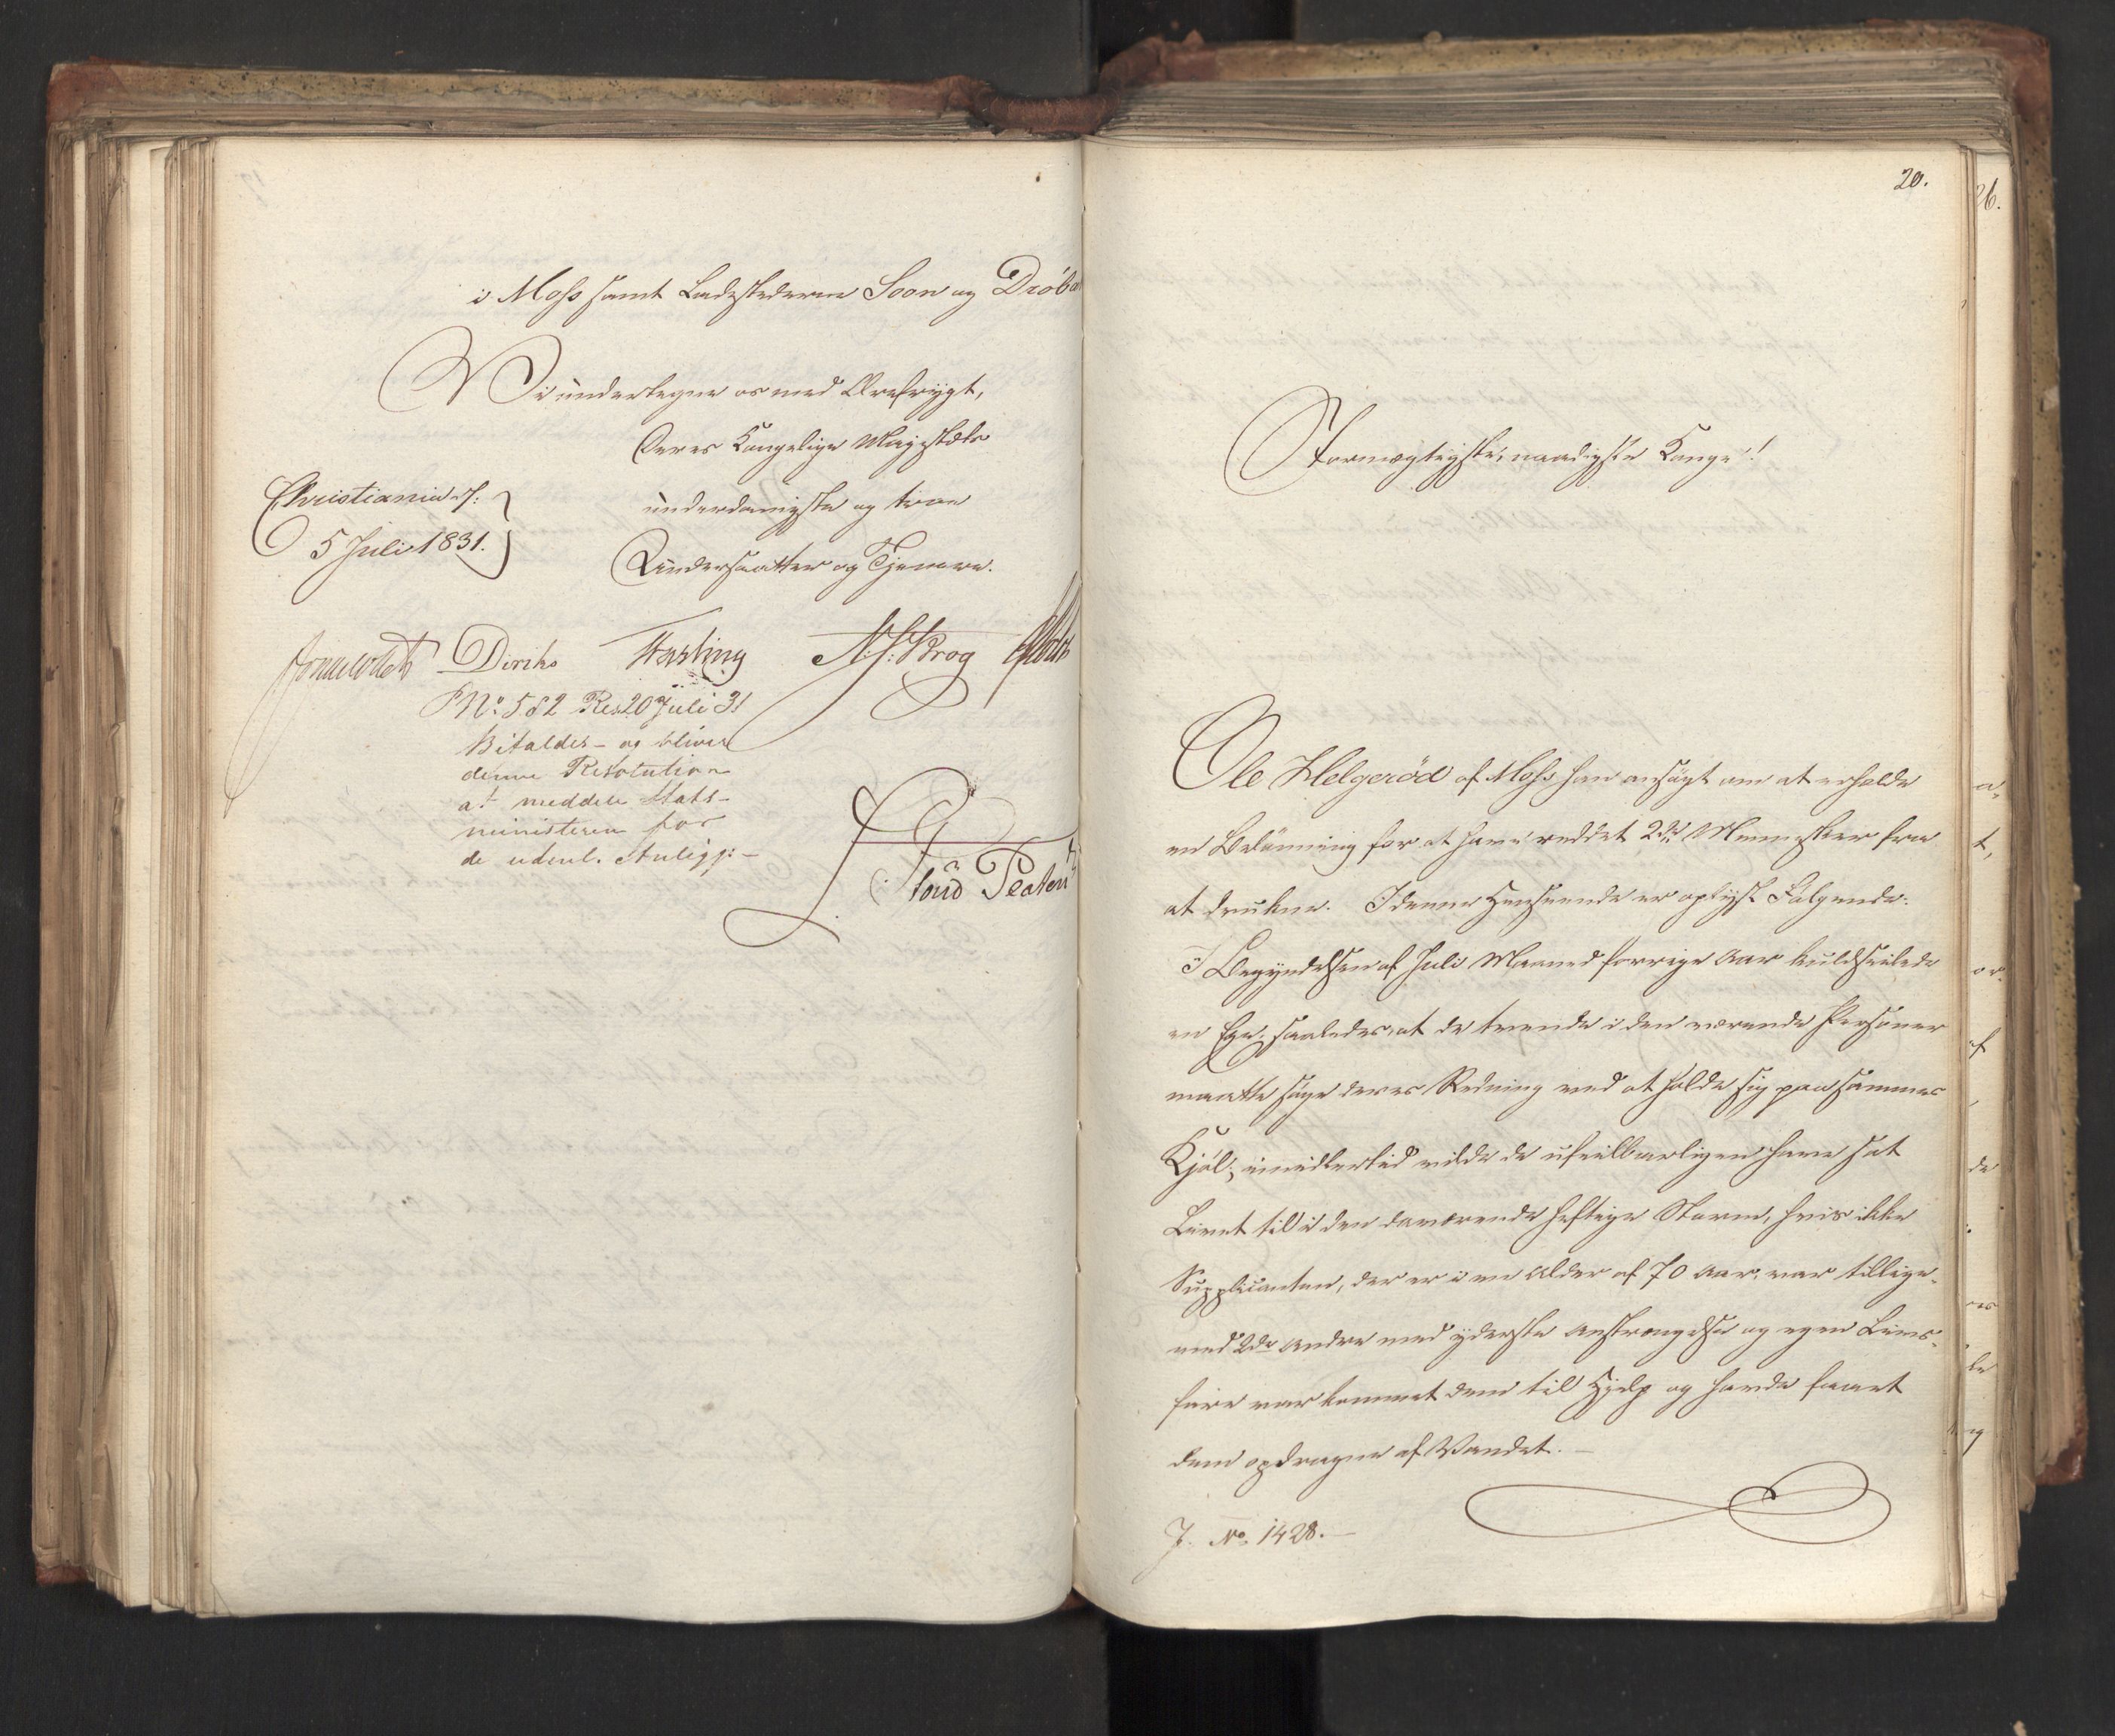 i Moss samt Ladestederne Soon og Dröba
Vi undertegne os med Ærefrygt,
Deres Kongelige Majestæts
underdanigste og troe
Undersaatter og Tjenere.
Christiania d:
5 Juli 1831.
Diriks N. J. Krog
No. 582 Res. 20 Juli 31
Bifaldes - og bliver
denne Resolution
at meddele Stats-
ministeren for
de udenl. Anligg: -
20.
Stormægtigste, naadigste Konge!
Ole Helgeröd af Moss har ansögt om at erholde
en Belönning for at have reddet 2de Mennesker fra
at drukne. I denne Henseende er oplyst Fölgende:
I Begyndelsen af Juli Maaned forrige Aar kuldseilede
en Ege, saaledes, at de tvende i den værende Personer
maatte söge deres Redning ved at holde sig paa sammes
Kjöl; imidlertid vilde de ufeilbarligen have sat
Livet til i den daværende heftige Storm, hvis ikke
Supplicanten, der er i en Alder af 70 Aar, var tillige-
med 2de Andre med yderste Anstrængelse og egen Livs-
fare var kommet dem til Hjelp og havde faaet
dem opdragne af Vandet. -
J. No. 1428. -
26.